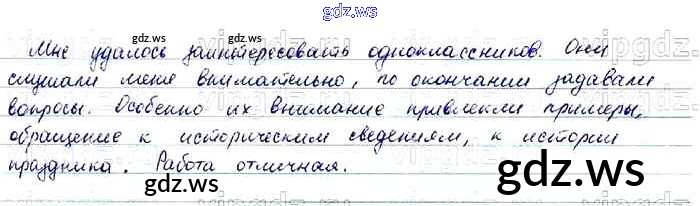 gdz.ws
Мне удалось заинтересовать одноклассников. Они
слушали меня внимательно, по окончании задавали
вопросы. Особенно их внимание привлекли примеры,
обращение к историческим сведениям, к истории
праздника. Работа отличная.
gdz.ws
gdz.ws
gdz.ws
gdz.ws
gdz.ws